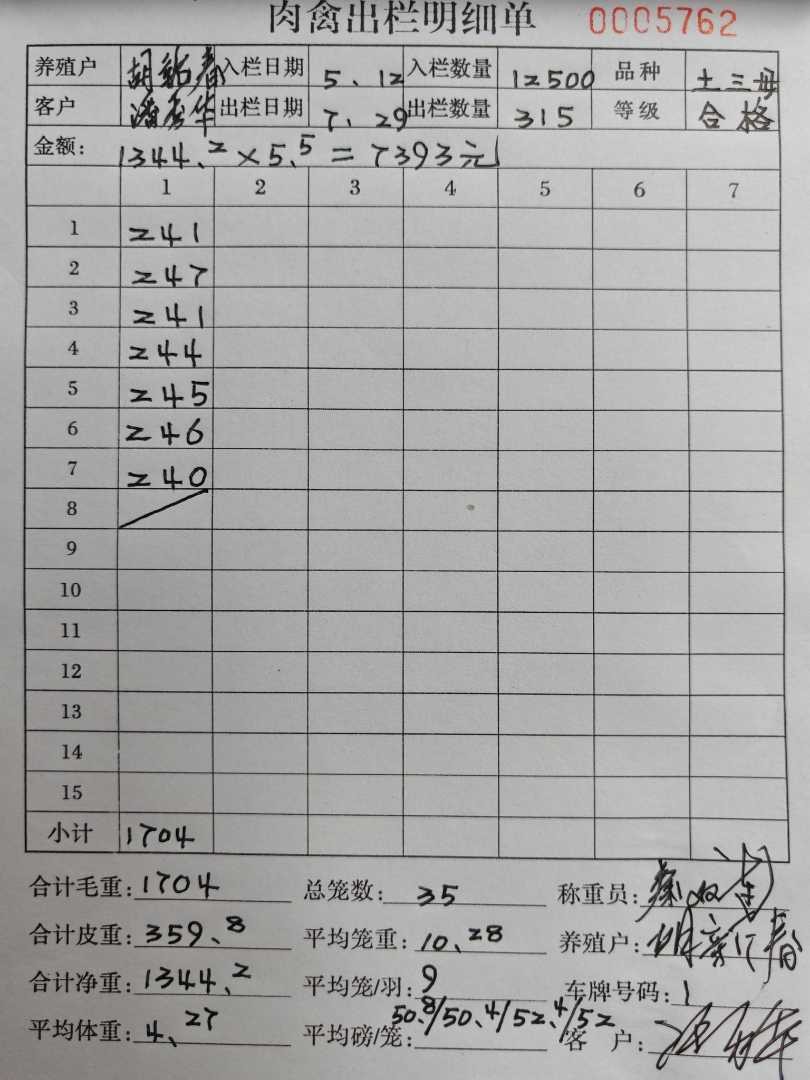 肉禽出栏明细单 0005762
养殖户 胡新春 入栏日期 5.12 入栏数量 12500 品种 土三母
客户 潘秀华 出栏日期 7.29 出栏数量 315 等级 合格
金额: 1344.2×5.5=7393元
1 2 3 4 5 6 7
1 241
2 247
3 241
4 244
5 245
6 246
7 240
8
9
10
11
12
13
14
15
小计 1704
合计毛重: 1704 总笼数: 35 称重员:
合计皮重: 359.8 平均笼重: 10.28 养殖户:
合计净重: 1344.2 平均笼/羽: 9 车牌号码: 1
平均体重: 4.27 平均磅/笼: 50.8/50.4/52.4/52 客户: